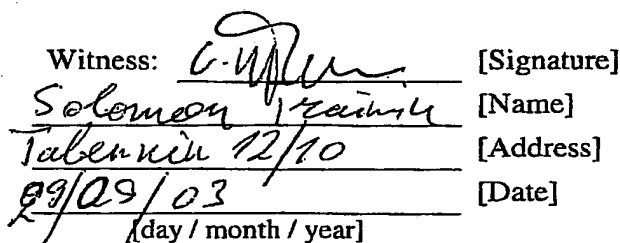 Witness: [Signature]
Solomon Trainin [Name]
Tabenkin 12/10 [Address]
/03 [Date]
[day / month / year]